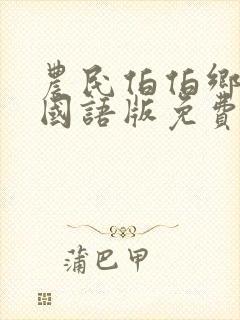 農民伯伯鄉
國語版免費
蒲巴甲